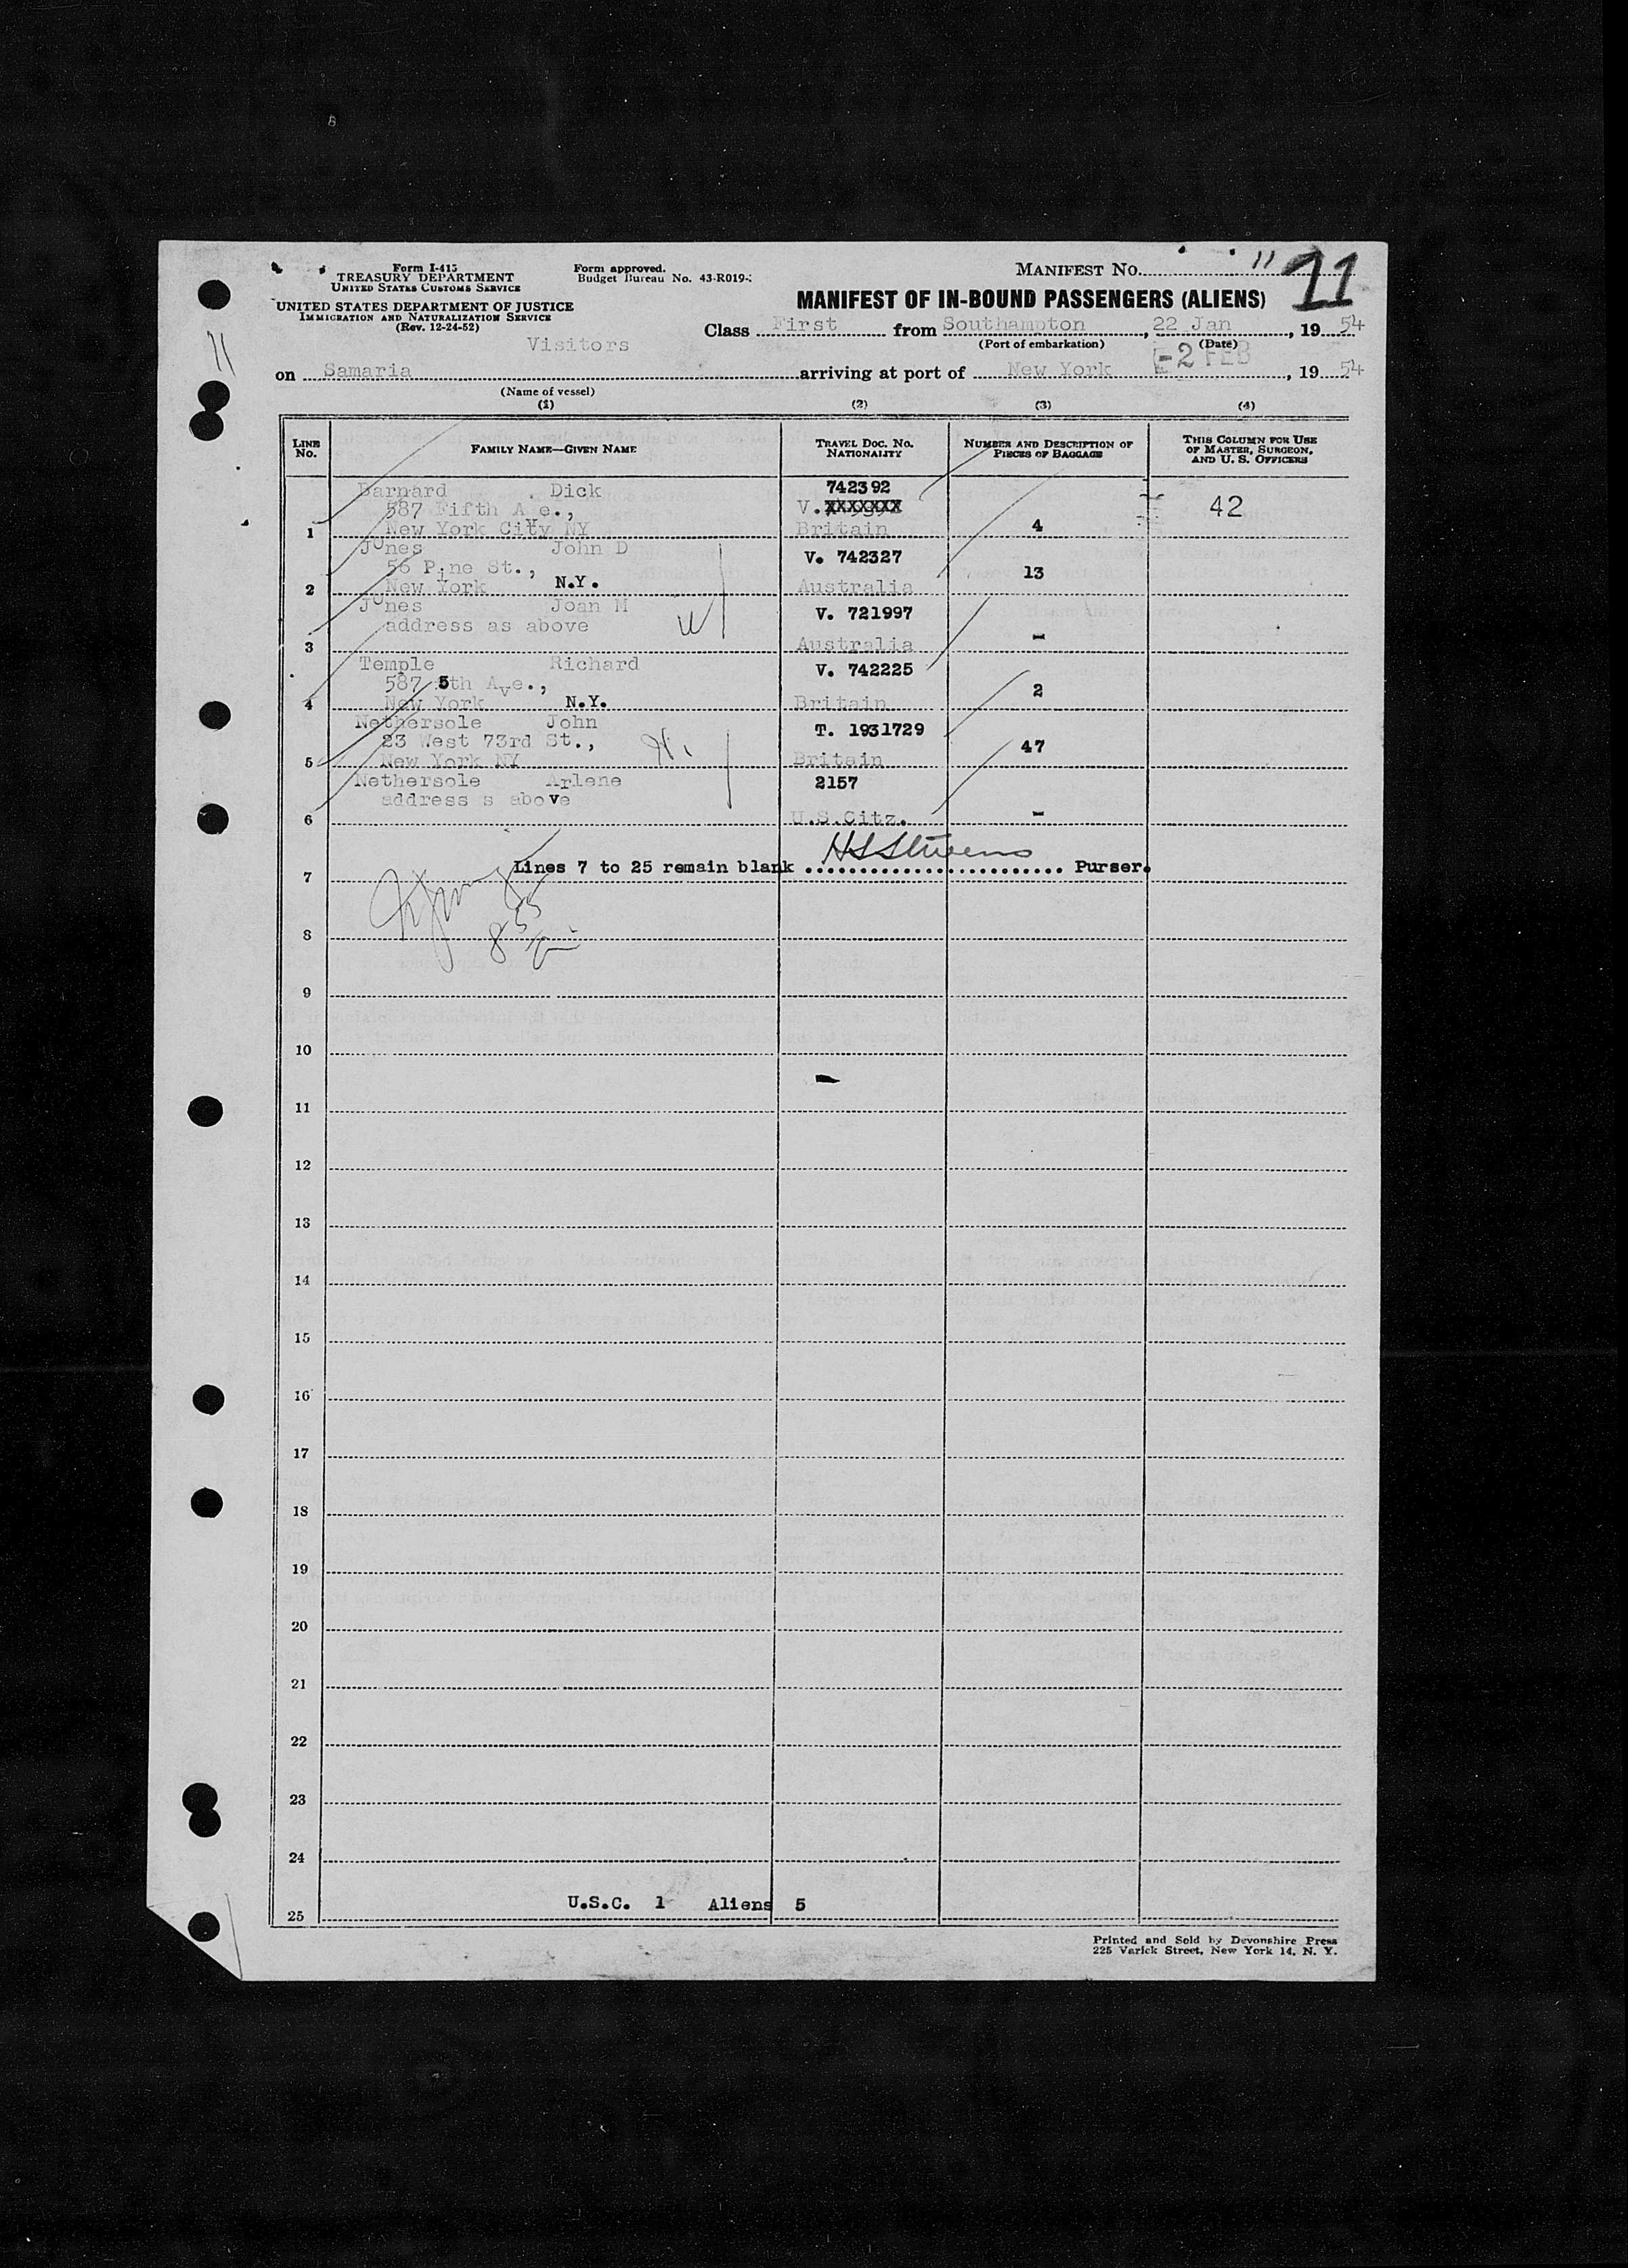 Form I-415
TREASURY DEPARTMENT
UNITED STATES CUSTOMS SERVICE
UNITED STATES DEPARTMENT OF JUSTICE
IMMIGRATION AND NATURALIZATION SERVICE
(Rev. 12-24-52)
Form approved.
Budget Bureau No. 43-R019-
MANIFEST NO. 11 11
MANIFEST OF IN-BOUND PASSENGERS (ALIENS)
Class First from Southampton, 22 Jan, 19 54
(Port of embarkation) (Date)
11
Visitors
-2 FEB
on Samaria arriving at port of New York, 19 54
(Name of vessel)
(1) (2) (3) (4)
LINE NO. FAMILY NAME—GIVEN NAME TRAVEL DOC. NO. NATIONALITY NUMBER AND DESCRIPTION OF PIECES OF BAGGAGE THIS COLUMN FOR USE OF MASTER, SURGEON, AND U. S. OFFICERS
Barnard Dick 742392
587 Fifth Ave., V. XXXXXXX 42
1 New York City NY Britain 4
Jones John D V. 742327
56 Pine St., 13
2 New York N.Y. Australia
Jones Joan M V. 721997
address as above
3 Australia -
Temple Richard V. 742225
587 5th Ave., 2
4 New York N.Y. Britain
Nethersole John T. 1931729
23 West 73rd St., 47
5 New York NY Britain
Nethersole Arlene 2157
address s above
6 U.S.Citz. -
Lines 7 to 25 remain blank HS Stivens Purser.
7
8
9
10
11
12
13
14
15
16
17
18
19
20
21
22
23
24
U.S.C. 1 Aliens 5
25
Printed and Sold by Devonshire Press
225 Varick Street, New York 14, N. Y.